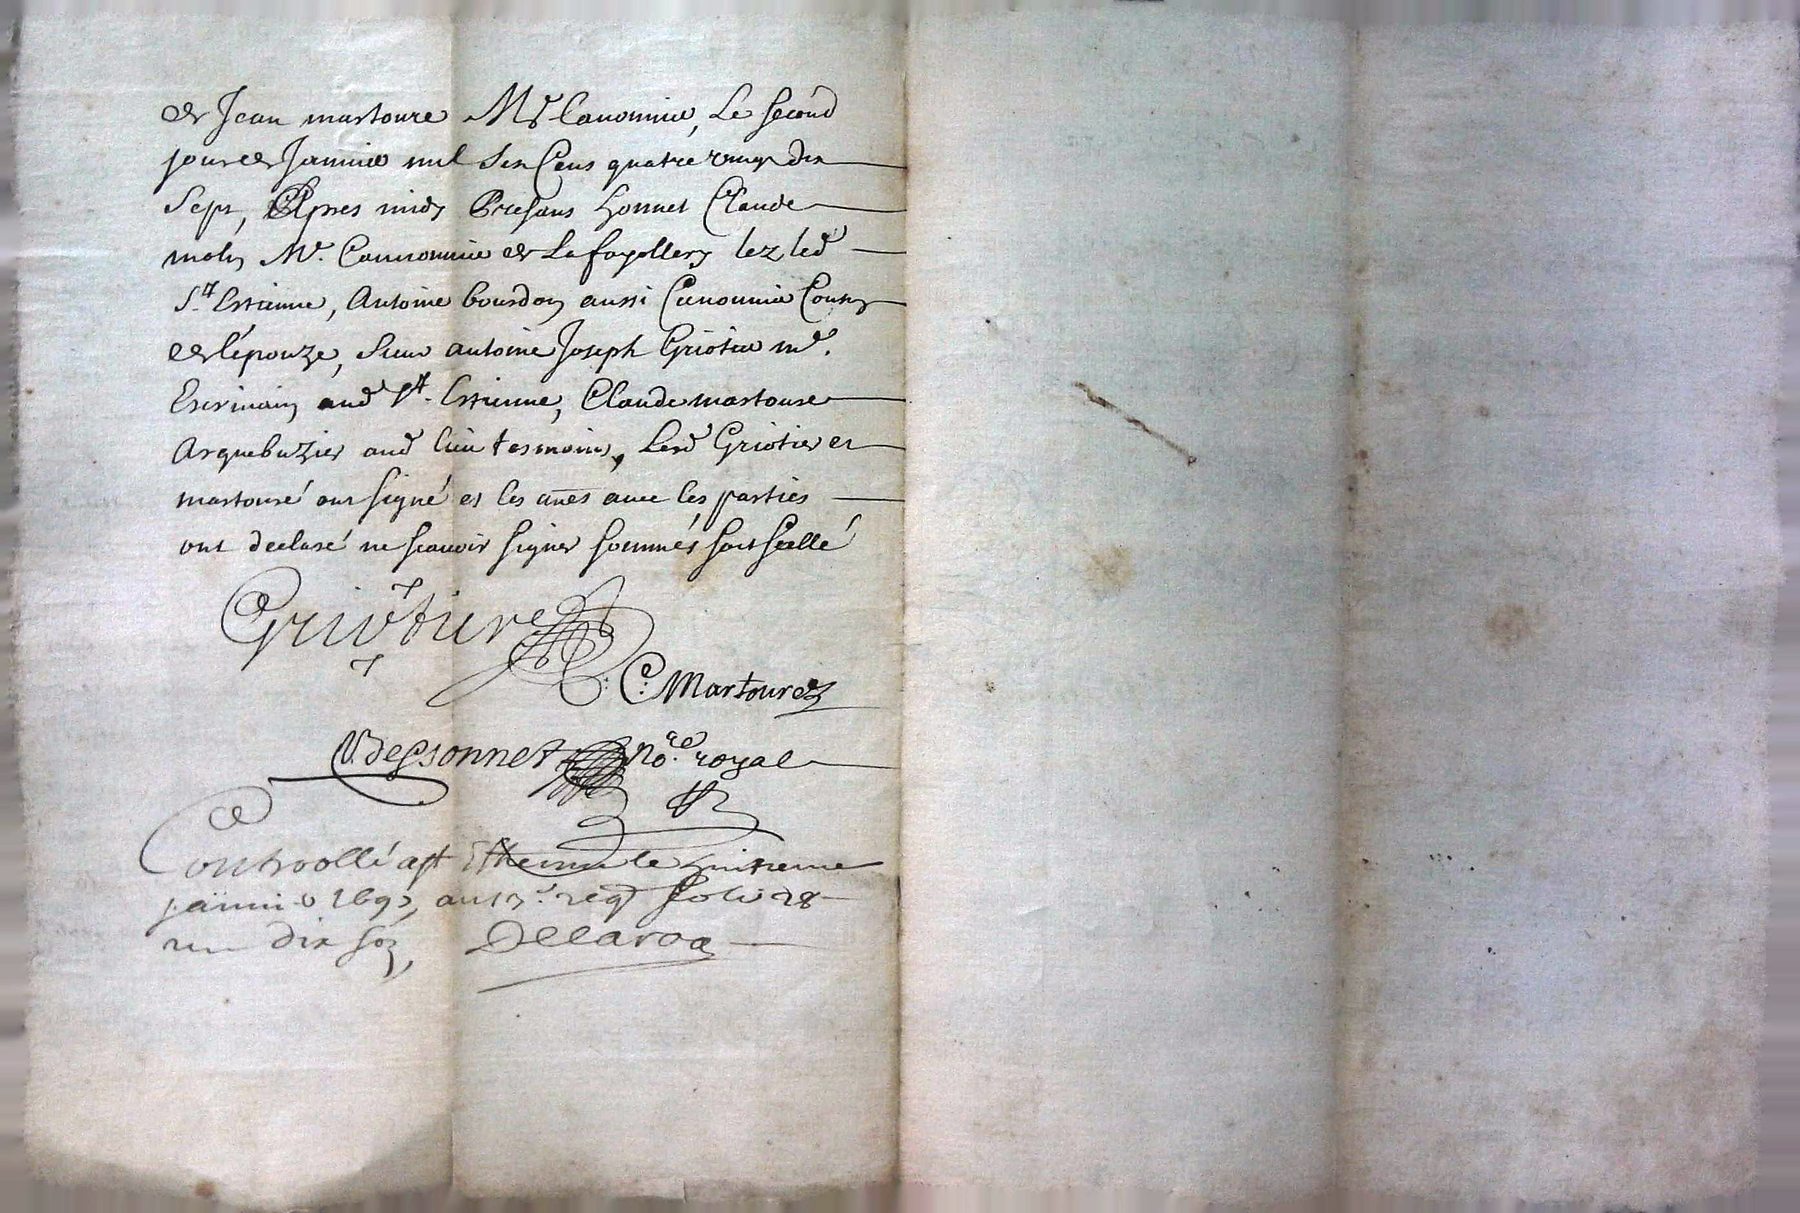 de Jean martoure Mr Canonnie, Le second
jour de Janvie mil Six Cens quatre vingt dix
Sept, Apres midy Presans honnet Claude
Mr. Cannonnie de La fayollery lez led
St. Estienne, Antoine bourdon aussi Canonnie
de l'épouze, Sieur antoine Joseph Griotie md.
Escrivain aud St. Estienne, Claude martoure
Arquebuzier aud lieu tesmoins, Lesd Griotier et
martouré ont signé et les aues avec les parties
ont declaré ne scavoir signer sommés soit scellé
Griotier
C: Martoure
V. dessonnet no.re royal
Controllé a st Etienne le huitieme
janvie 1697, au reg folio 28
dix soz, Delaroa